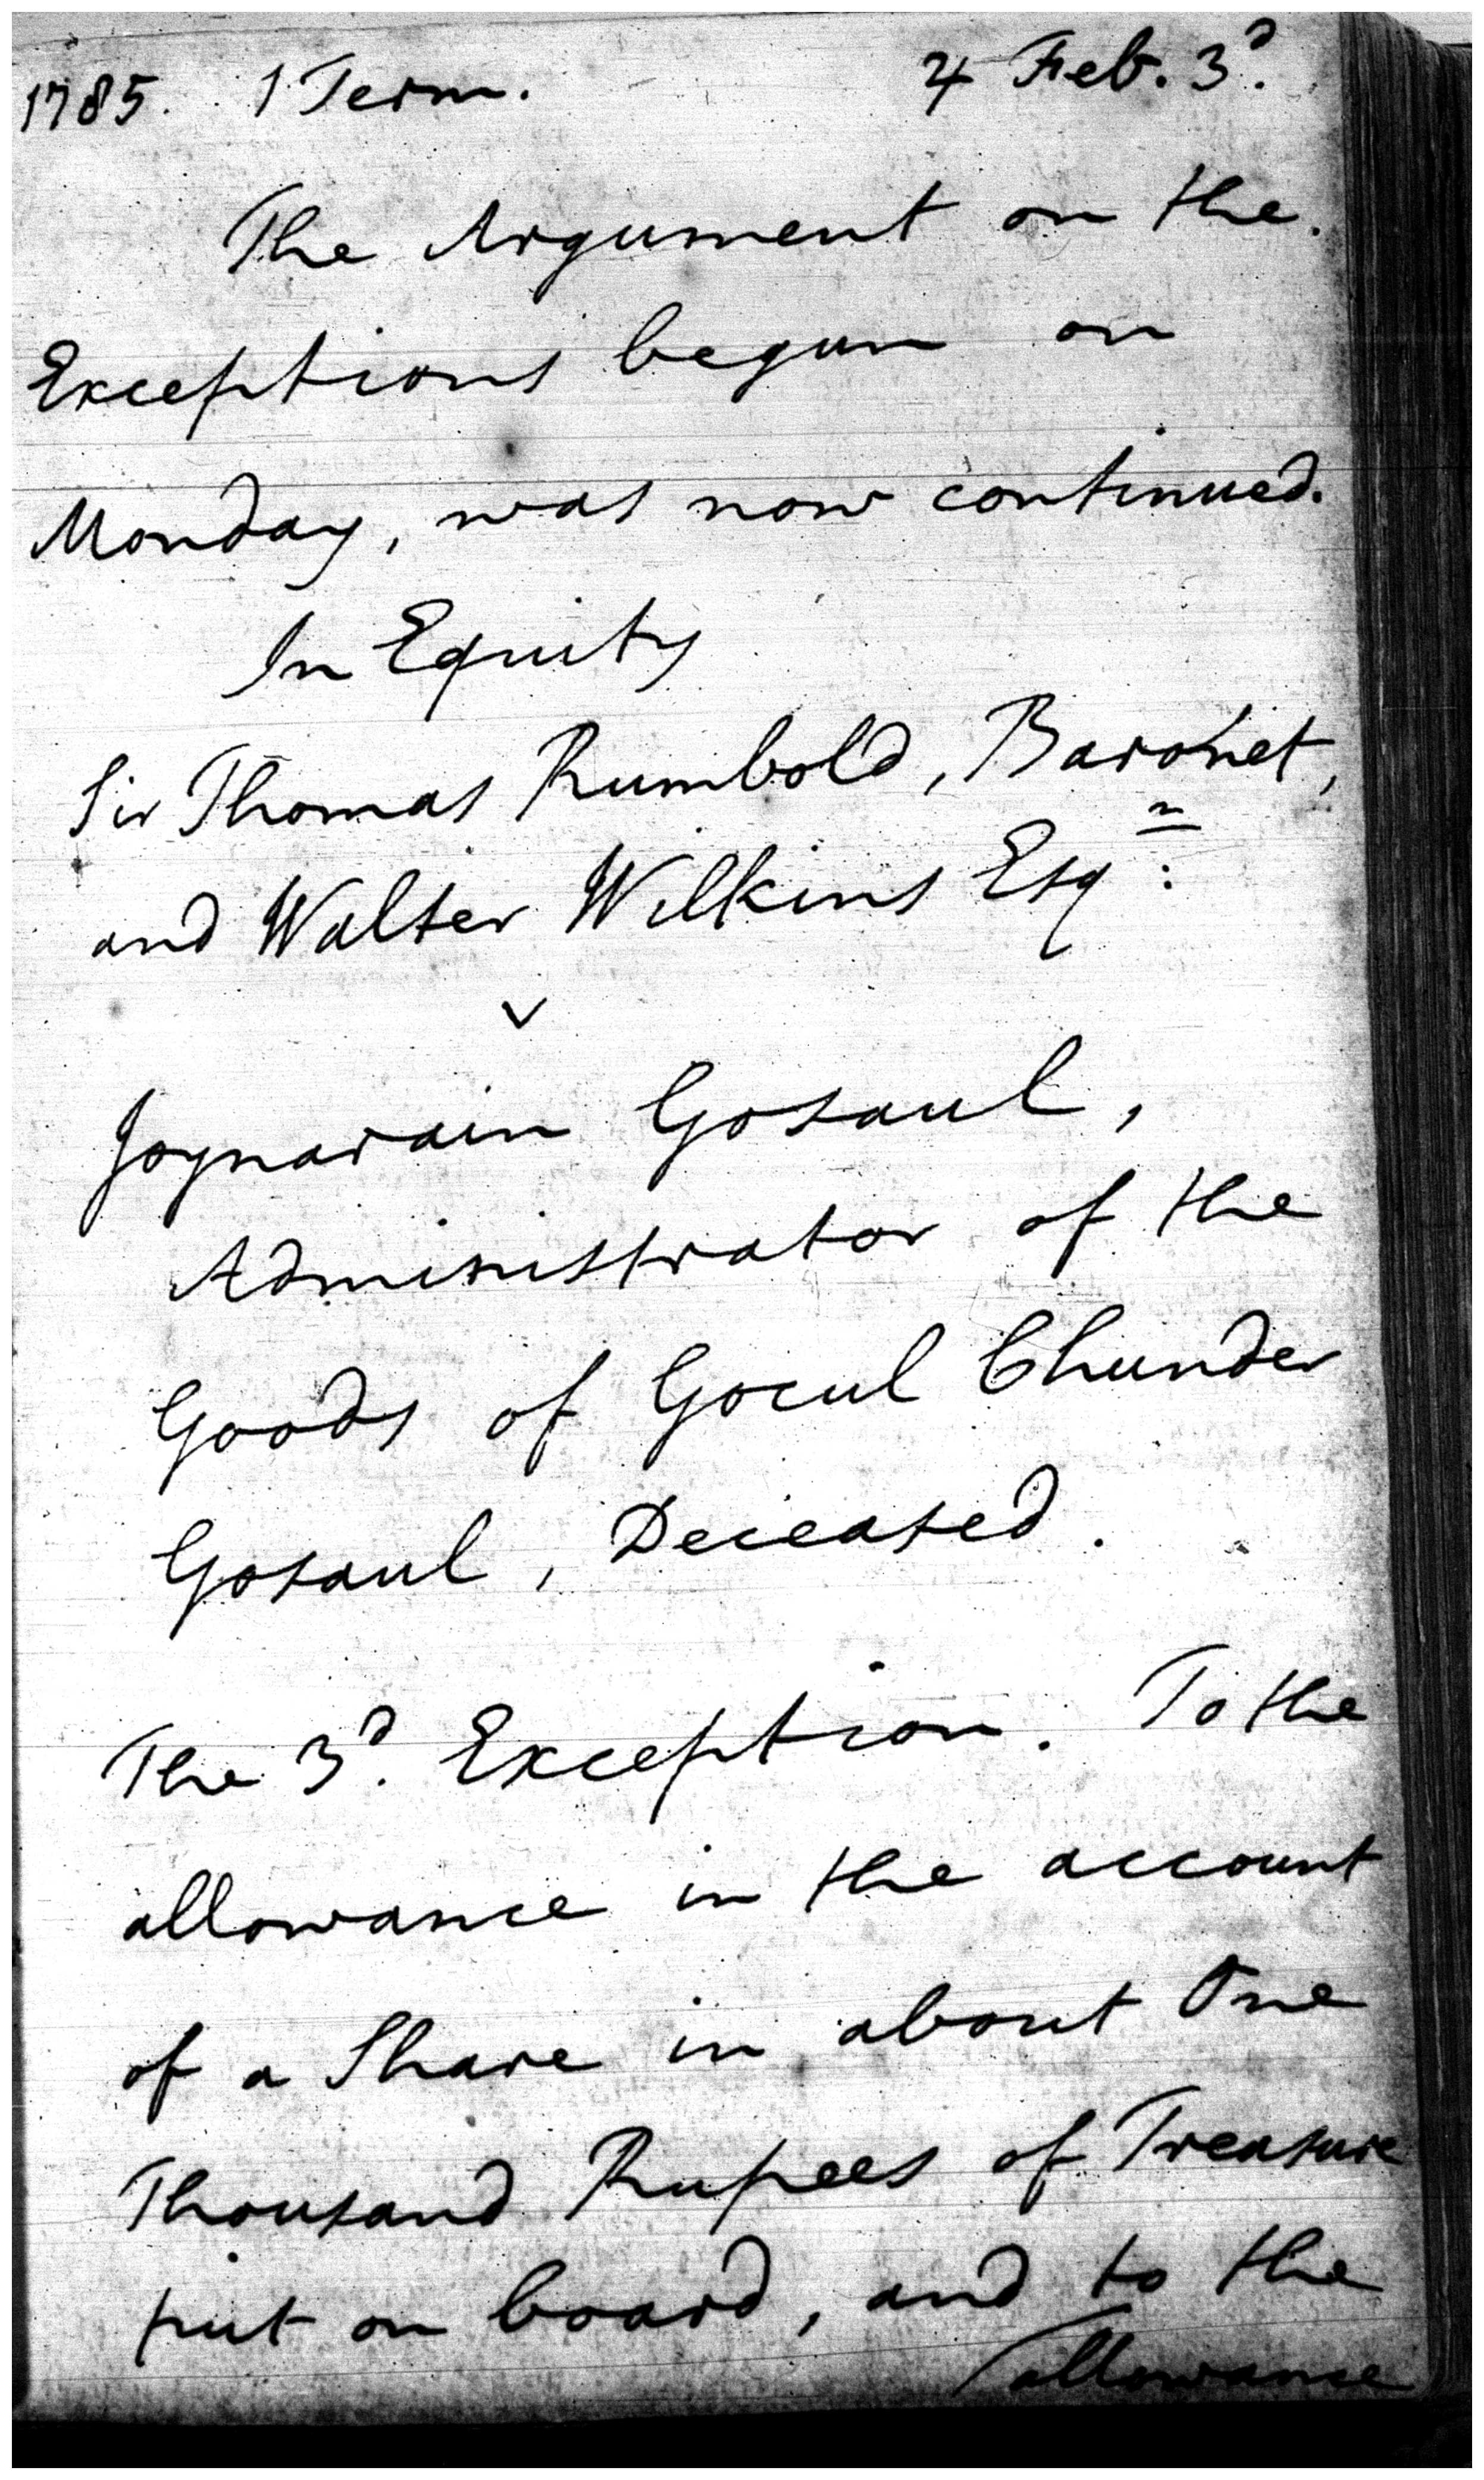 1785. 1 Term. 4 Feb. 3d.
The Argument on the
Exceptions begun on
Monday, was now continued.
In Equity
Sir Thomas Rumbold, Baronet,
and Walter Wilkins Esqr:
v
Joynarain Gosaul,
Administrator of the
Goods of Gocul Chunder
Gosaul, Deceased.
The 3d. Exception. To the
allowance in the account
of a Share in about One
Thousand Rupees of Treasure
put on board, and to the
/allowance